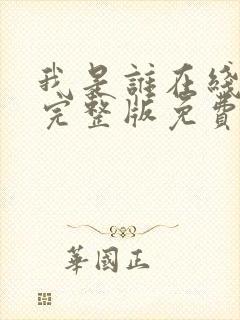 我是誰在綫
完整版免費
華國正